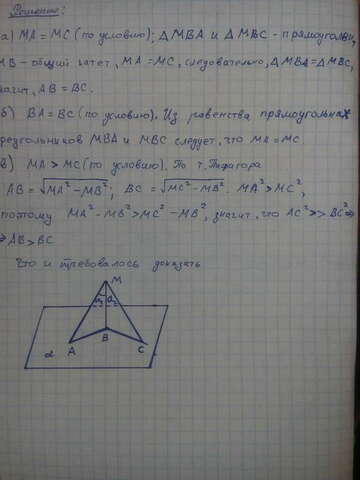 Решение:
а) MA = MC (по условию); △MBA и △MBC - прямоугольн
MB - общий катет, MA = MC, следовательно, △MBA = △MBC,
начит, AB = BC.
б) BA = BC (по условию). Из равенства прямоугольных
реугольников MBA и MBC следует, что MA = MC.
в) MA > MC (по условию). По т. Пифагора
AB = √MA² - MB²; BC = √MC² - MB². MA² > MC²,
поэтому MA² - MB² > MC² - MB², значит, что AC² >> BC² ⇒
⇒ AB > BC
Что и требовалось доказать
M
A B C
α